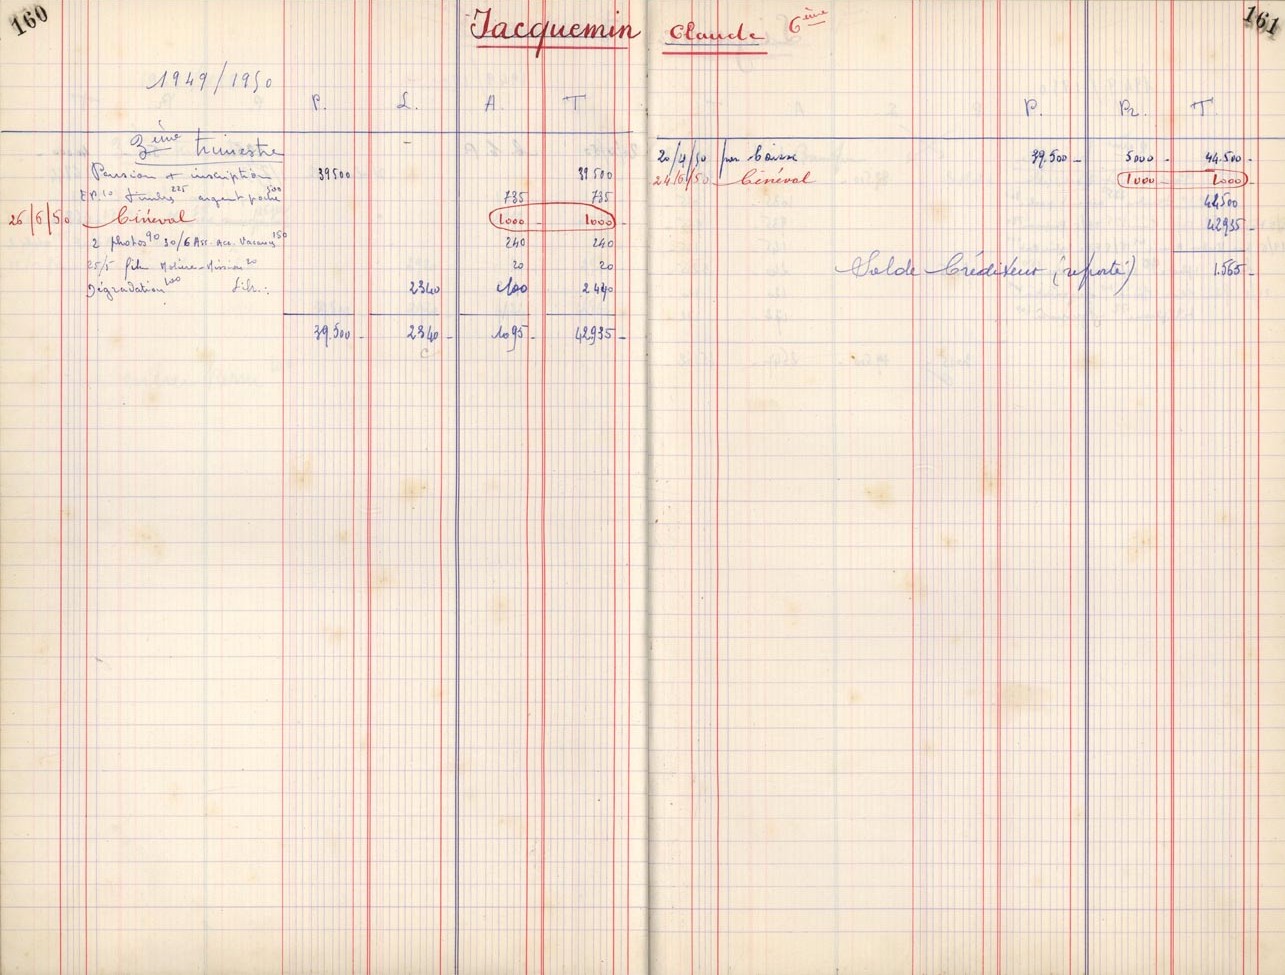 160
Jacquemin Claude 6ème
161
1949/1950
P. L. A. T
3ème trimestre
Pension + inscription 39500 39500
E.P. 10 timbres 225 argent poche 500 735 735
26/6/50 Cinéval 1000 1000
2 photos 90 30/6 Ass. acc. Vacances 150 240 240
25/5 film Molière-Mission 20 20 20
Dégradation 100 Lib.: 2340 100 2440
39.500 - 2340 - 1095 - 42935 -
c
P. Pr. T.
20/4/50 par Caisse 39.500 - 5000 - 44.500 -
24/6/50 Cinéval 1000 - 1000 -
44500
42935 -
Solde Créditeur (reporté) 1.565 -